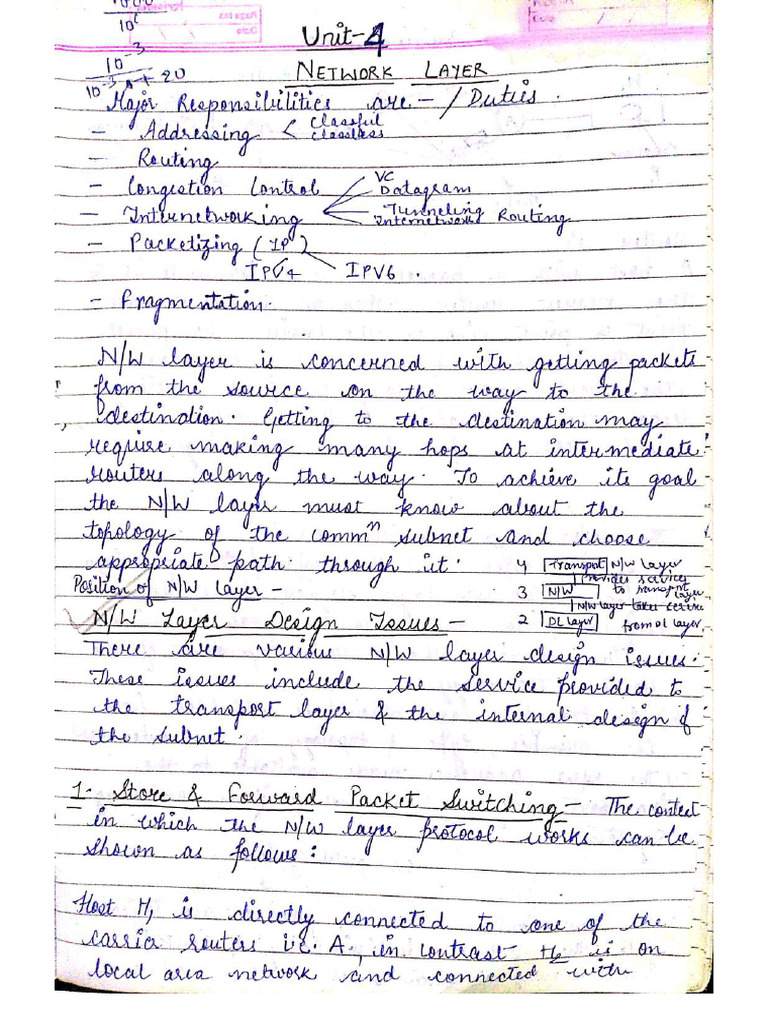 10⁶
Unit-4
10⁻³
NETWORK LAYER
Major Responsibilities are - / Duties.
- Addressing < Classful
Classless
- Routing
- Congestion Control
VC
Datagram
- Internetworking
Tunneling
Internetwork Routing
- Packetizing (IP)
IPV4 IPV6.
- Fragmentation.
N/W layer is concerned with getting packets
from the source on the way to the
destination. Getting to the destination may
require making many hops at intermediate
routers along the way. To achieve its goal
the N/W layer must know about the
topology of the commⁿ subnet and choose
appropriate path through it.
4 Transport N/W layer
Provides services
3 N/W to transport layer
N/W layer takes service
2 DL layer from DL layer
Position of N/W layer -
N/W Layer Design Issues -
There are various N/W layer design issues.
These issues include the service provided to
the transport layer & the internal design of
the subnet.
1. Store & Forward Packet Switching - The context
in which the N/W layer protocol works can be
shown as follows :
Host H₁ is directly connected to one of the
carrier routers i.e. A, in contrast H₂ is on
local area network and connected with